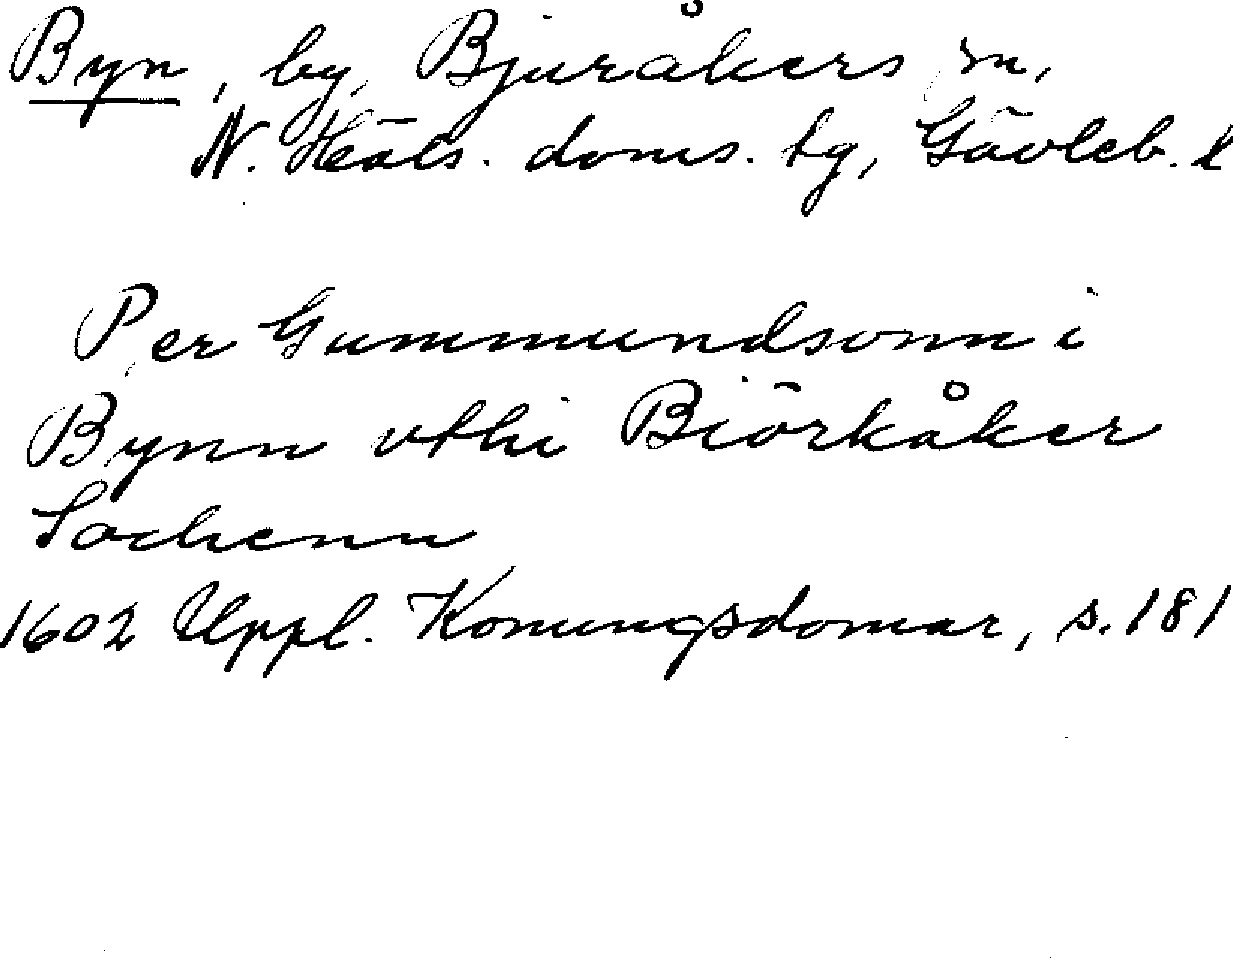 Byn, by, Bjuråkers sn,
N. Häls. doms. tg, Gävleb. l
Per Gummundsonn i
Bynn vthi Biörkåker
Sochenn
1602 Uppl. Konungsdomar, s. 181